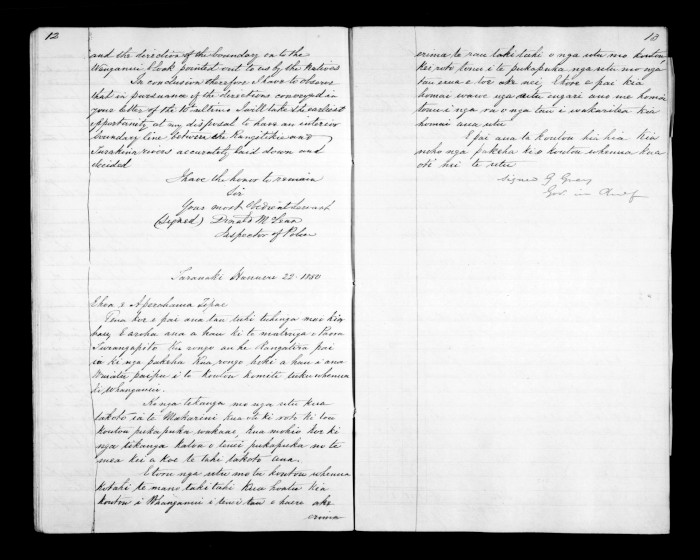 12
and the direction of the boundary on to the
Wanganui block pointed out to us by the Natives
In conclusion therefore I have to observe
that in pursuance of the directions conveyed in
your letter of the 10th ultimo I will take the earliest
opportunity at my disposal to have an interior
boundary line between the Rangitikei and
Turakina rivers accurately laid down and
decided
I have the honor to remain
Sir
Your most Obedient Servant
(Signed) Donald McLean
Inspector of Police
Taranaki Hanuere 22. 1850
E hoa e Aperahama Tipae
Tena koe e pai ana tau tuhi tuhinga mai kia
hau E aroha ana a hau ki te matenga o Paora
Turangapito Ka rongo au he Rangatira pai
ia ki nga pakeha Kua rongo hoki a hau i ana
i to koutou komete tuku whenua
ki Whanganui.
Ko nga tikanga mo nga utu kua
takoto ia te Makarini kua oti ki roto ki tou
koutou pukapuka wakaae, kua mohio koe ki
nga tikanga katoa o tenei pukapuka no te
mea kei a koe te tahi takoto ana.
E toru nga utu mo to koutou whenua
kotahi te mano taki tahi kua hoatu kia
koutou i Whanganui i tenei tau e haere ake
erima
13
erima te rau taki tahi o nga utu mo koutou
kei roto tonu i te pukapuka nga utu mo nga
tau erua e toe ake nei, E kore e pai kia
homai wawe nga utu engari ano me homai
tonu i nga ra o nga tau i wakaritea kia
homai aua utu
E pai ana ta koutou hia hia kia
noho nga pakeha ki o koutou whenua kua
oti nei te utu
Signed G Grey
Gov. in Chief